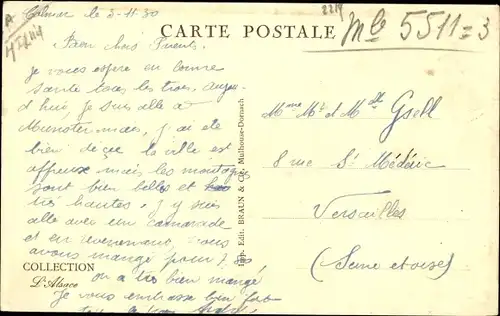 Colmar le 3-11-30
CARTE POSTALE
Mlle 5511=3
Bien chers Parents
Je vous espère en bonne
santé tous les trois, aujour-
d'hui, je suis allé à
Munster mais, j'ai été
bien déçue la ville est
affreuse mais, les montagnes
sont bien belles et
très hautes, j'y suis
allé avec un camarade
et en revenant, nous
avons mangé pour
on a très bien mangé
Je vous embrasse bien fort
COLLECTION
L'Alsace
Imp. Edit. BRAUN & Cie, Mulhouse-Dornach
Mme Mr et Mlle Gsell
8 rue St Médéric
Versailles
(Seine et oise)